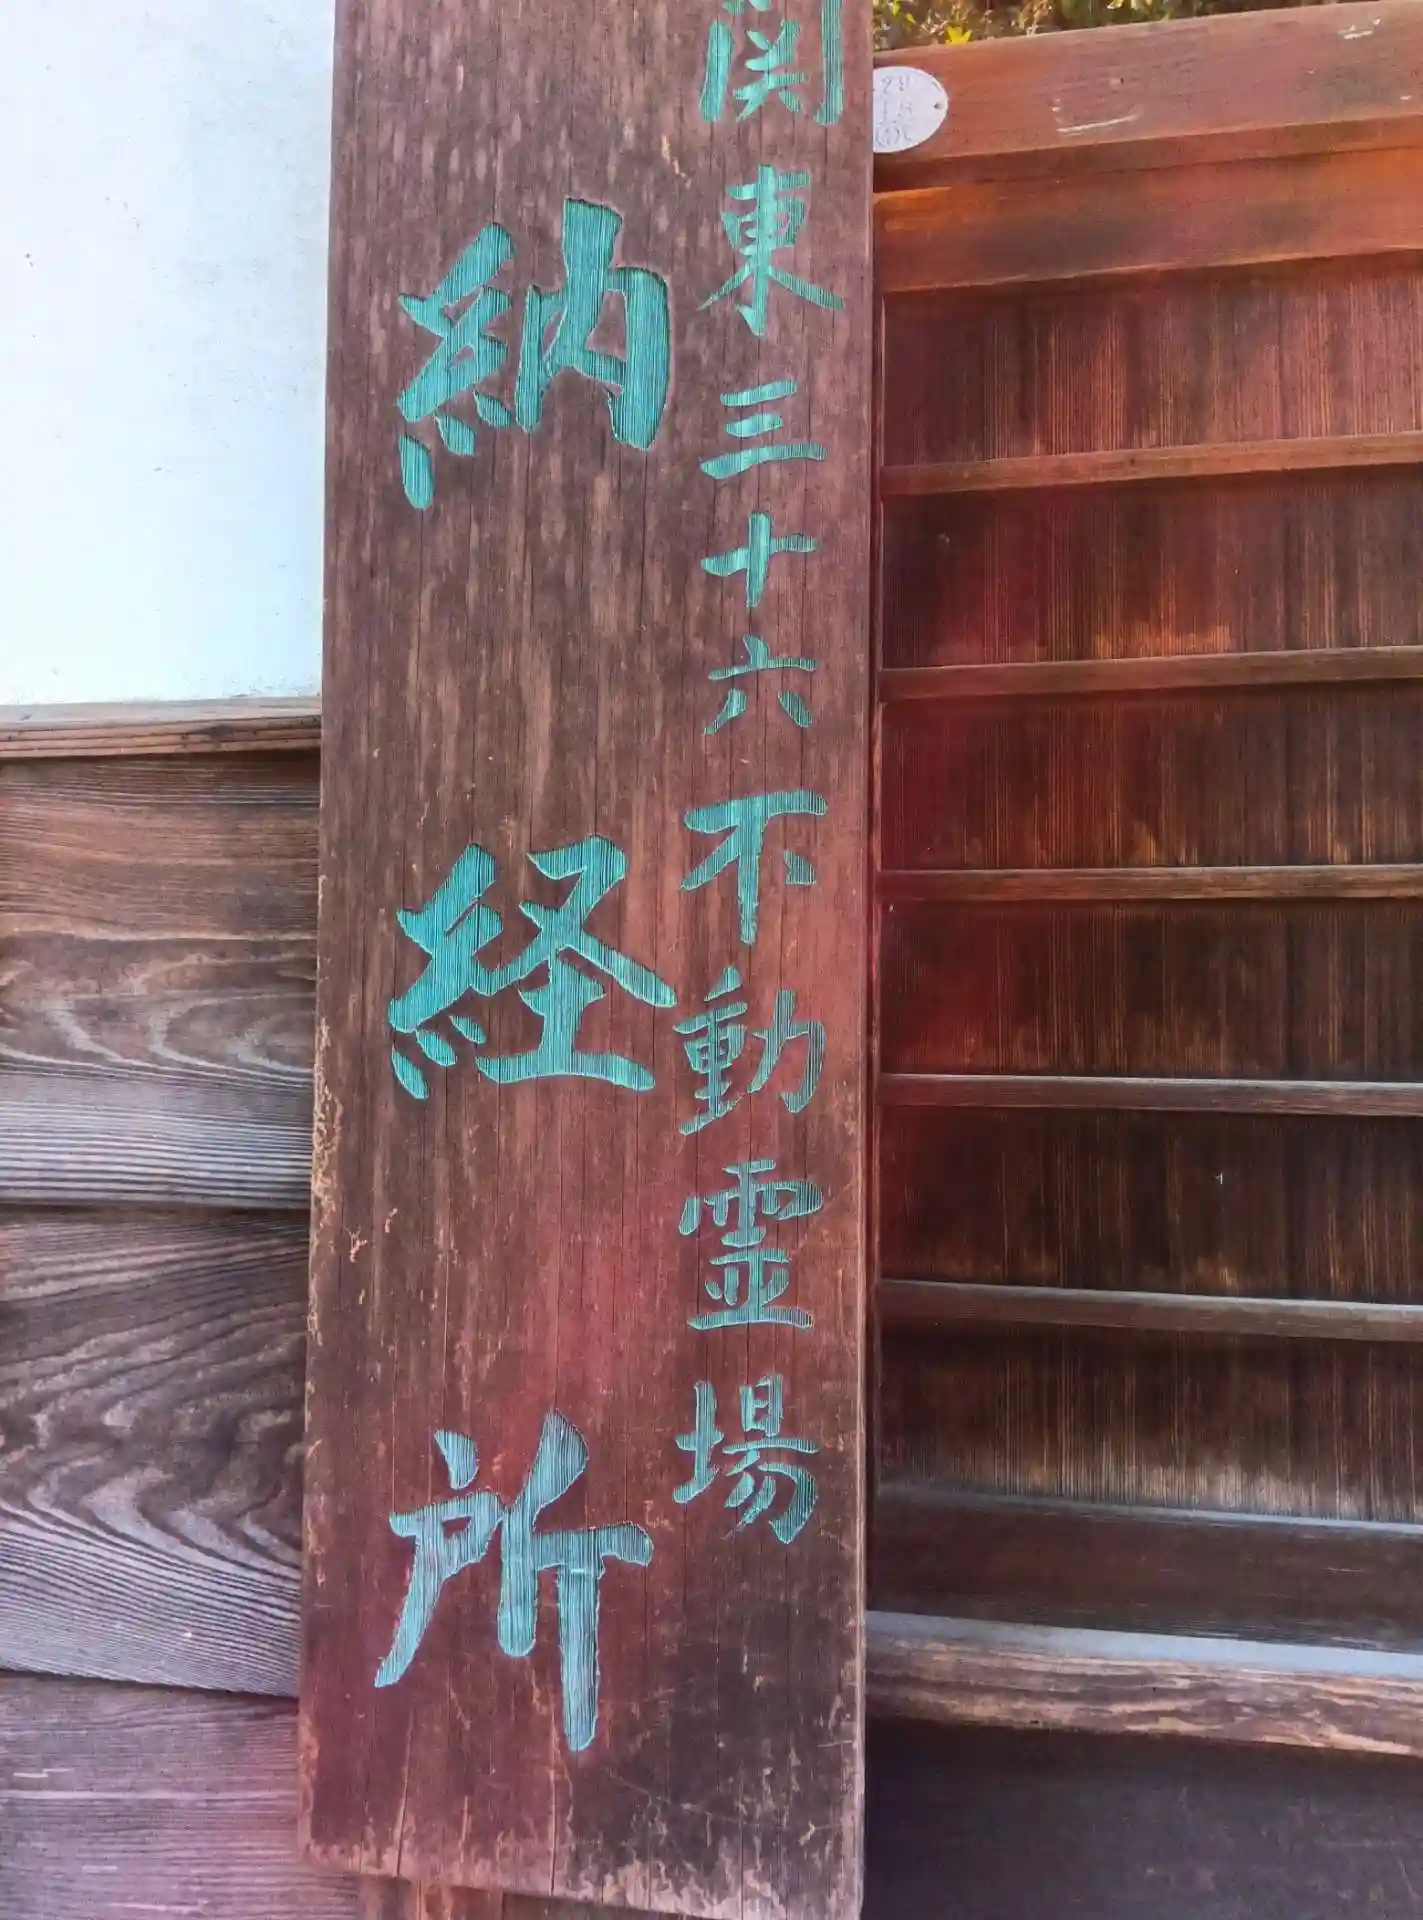 関東三十六不動霊場
納経所